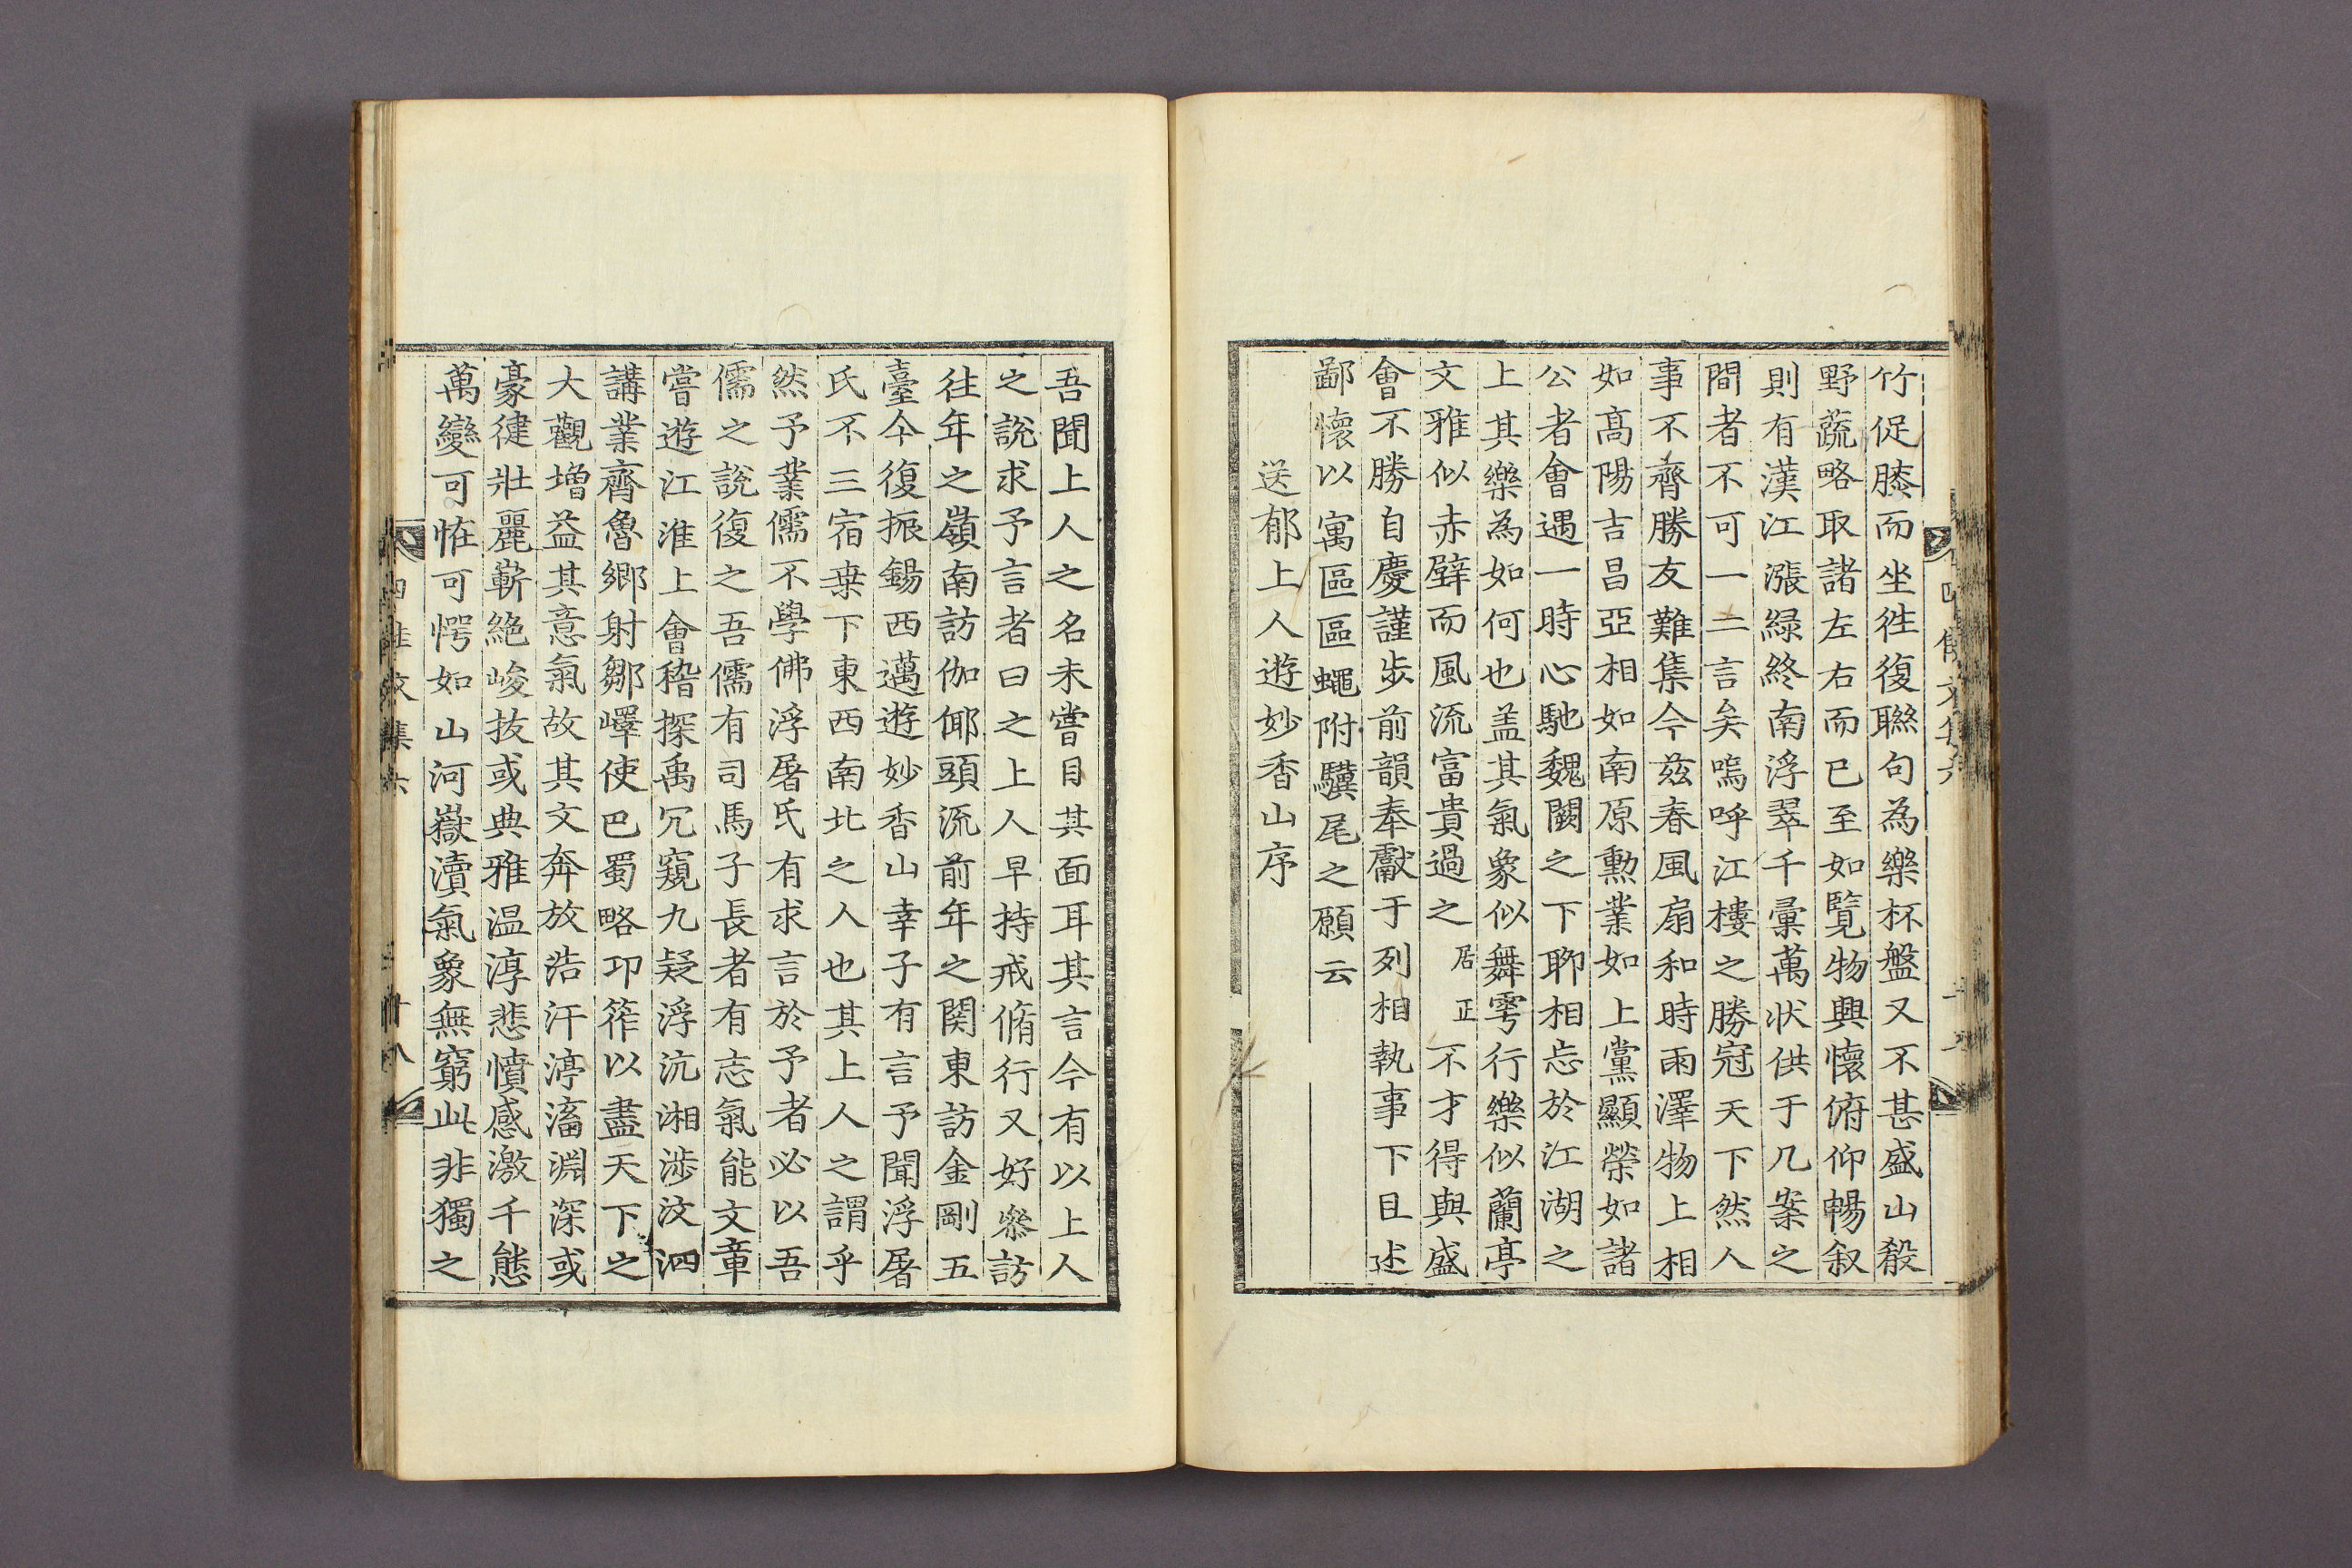 竹促膝而坐徃復聯句為樂杯盤又不甚盛山殽
野蔬略取諸左右而已至如覽物興懷俯仰暢叙
則有漢江漲緑終南浮翠千彙萬狀供于几案之
間者不可一二言矣嗚呼江樓之勝冠天下然人
事不齊勝友難集今玆春風扇和時雨澤物上相
如高陽吉昌亞相如南原勳業如上黨顯榮如諸
公者會遇一時心馳魏闕之下聊相忘於江湖之
上其樂為如何也盖其氣象似舞雩行樂似蘭亭
文雅似赤壁而風流富貴過之居正不才得與盛
會不勝自慶謹步前韻奉獻于列相執事下且述
鄙懷以寓區區蠅附驥尾之願云
送郁上人遊妙香山序
吾聞上人之名未嘗目其面耳其言今有以上人
之說求予言者曰之上人早持戒脩行又好叅訪
往年之嶺南訪伽倻頭流前年之関東訪金剛五
臺今復振錫西邁遊妙香山幸子有言予聞浮屠
氏不三宿桒下東西南北之人也其上人之謂乎
然予業儒不學佛浮屠氏有求言於予者必以吾
儒之說復之吾儒有司馬子長者有志氣能文章
嘗遊江淮上會稽探禹冗窺九疑浮沆湘涉汶泗
講業齊魯鄉射鄒嶧使巴蜀略卭筰以盡天下之
大觀增益其意氣故其文奔放浩汗渟滀淵深或
豪徤壯麗嶄絶峻抜或典雅温淳悲憤感激千態
萬變可恠可愕如山河嶽瀆氣象無窮此非獨之
四佳文集六